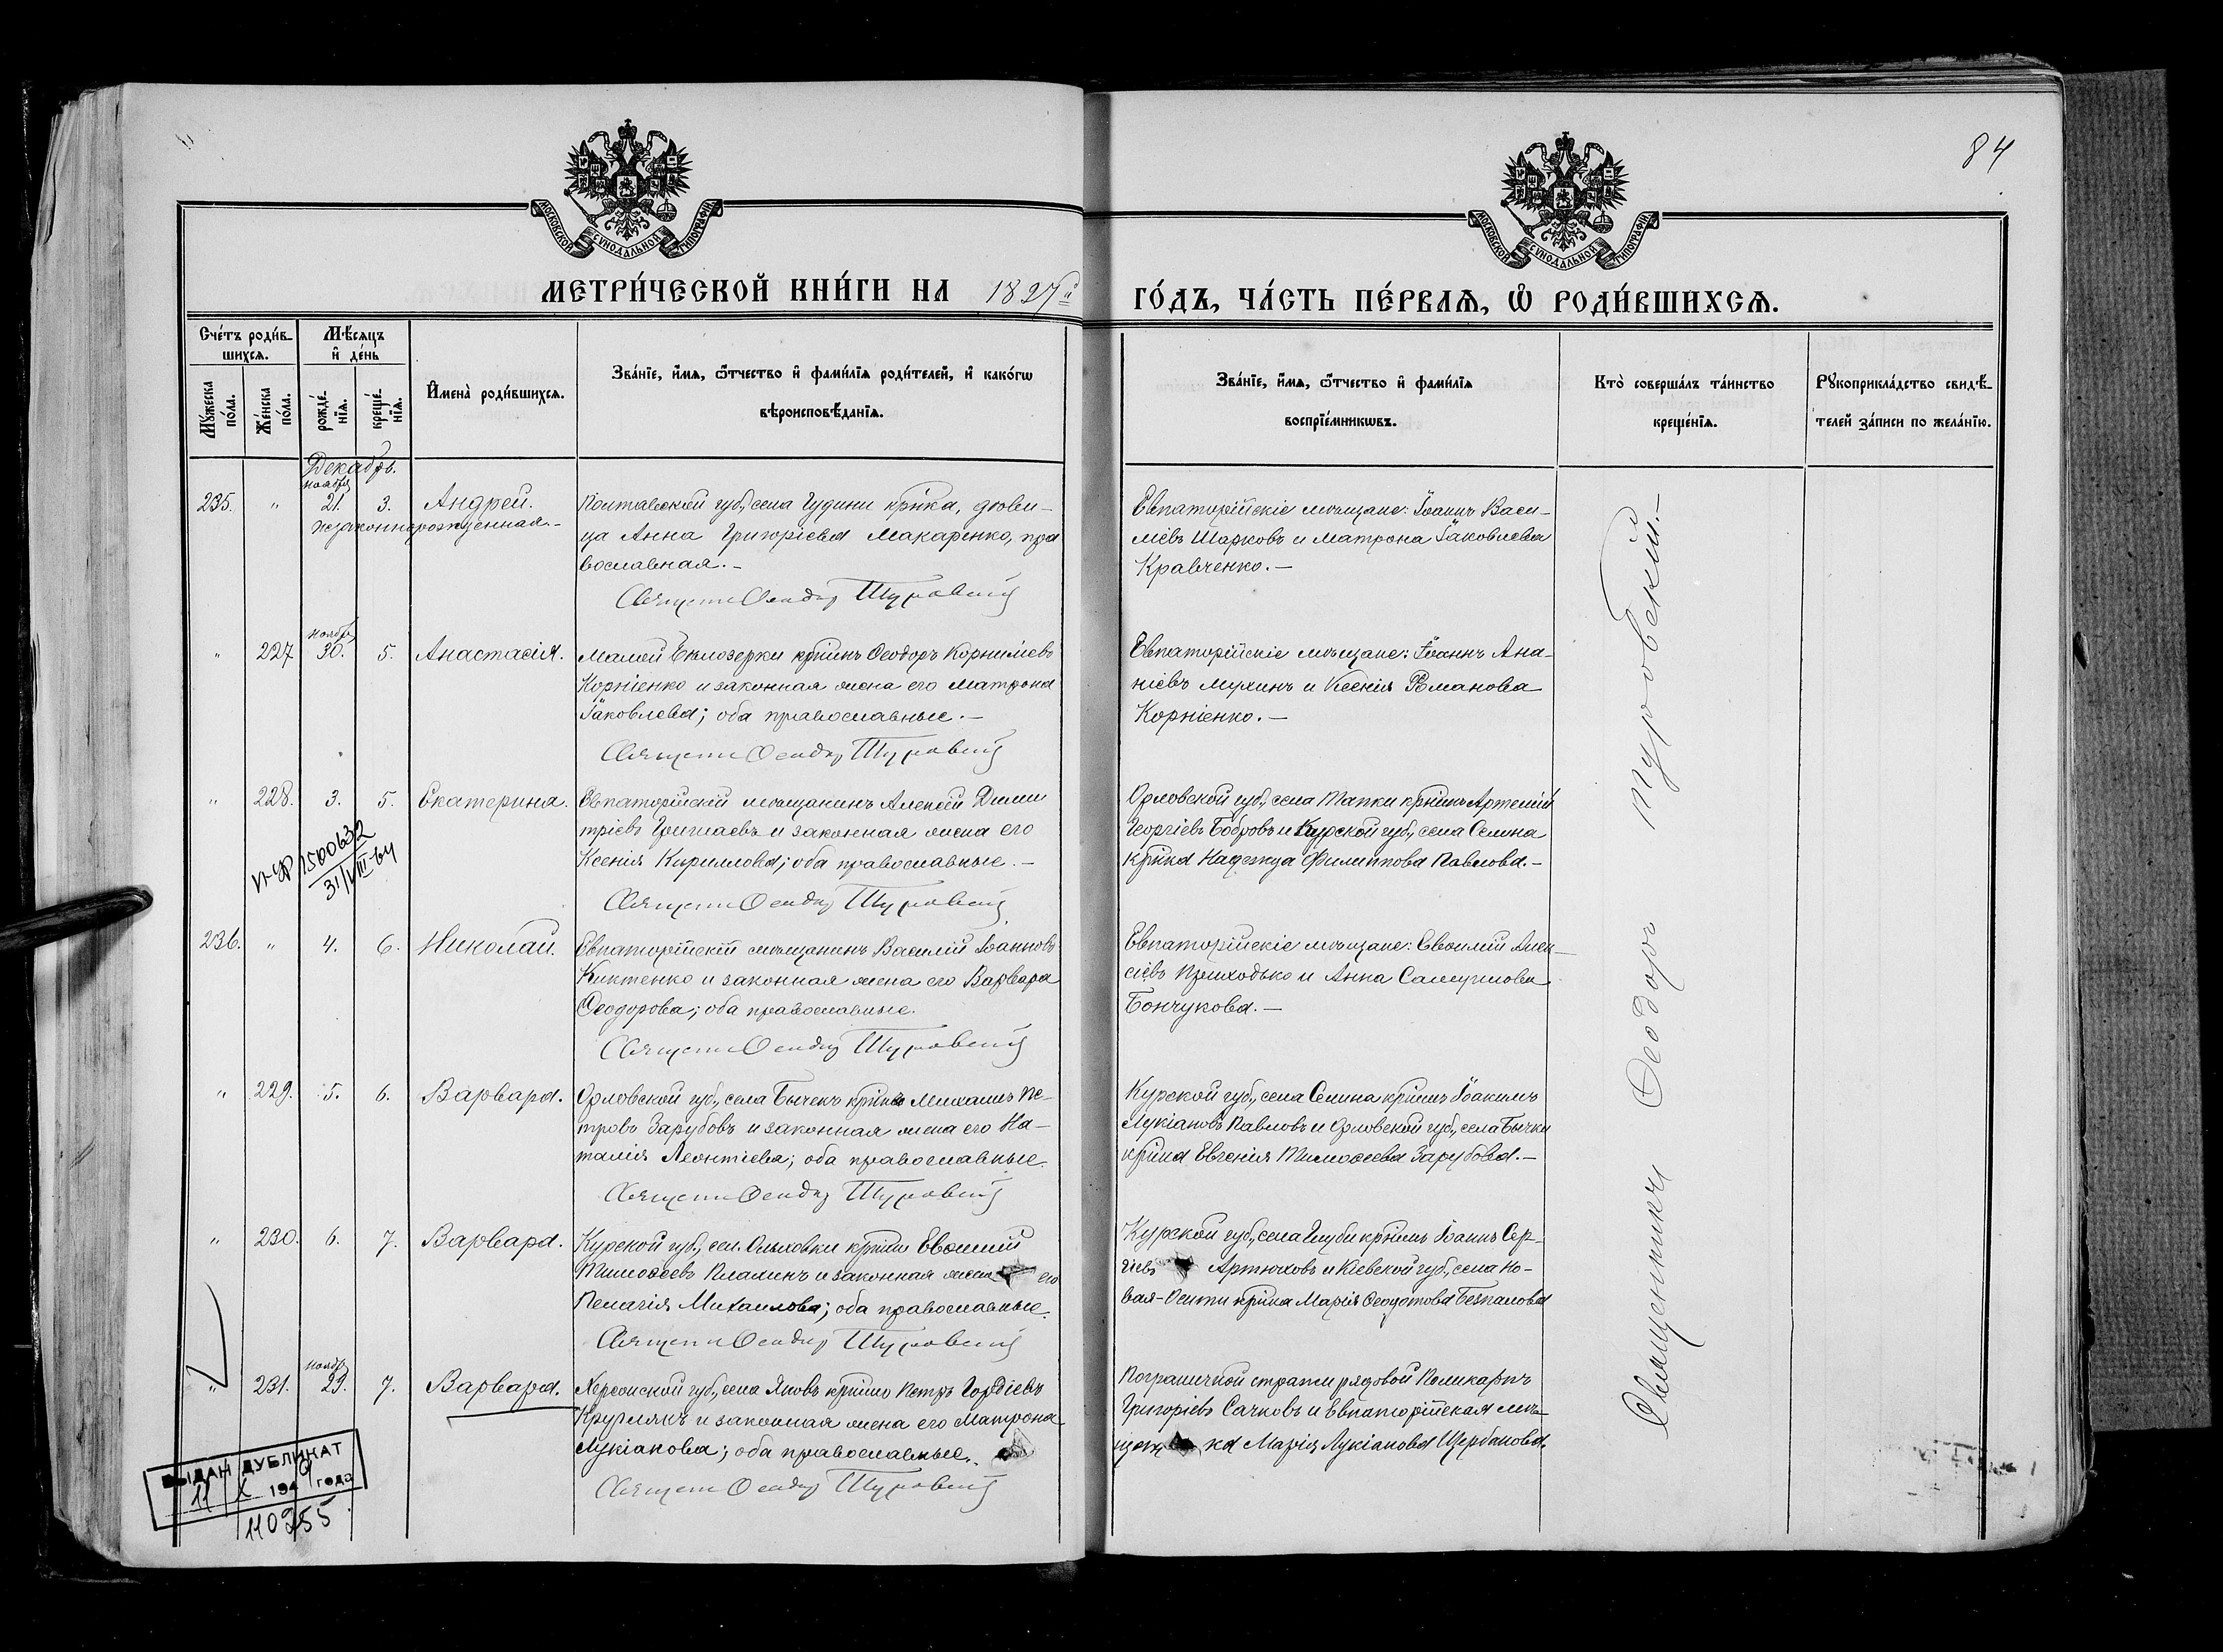 84
МОСКОВСКОЙ СѴНОДАЛЬНОЙ ТИПОГРАФІИ
МОСКОВСКОЙ СѴНОДАЛЬНОЙ ТИПОГРАФІИ
МЕТРИ́ЧЕСКОЙ КНИ́ГИ НА 1897й ГО́ДЪ, ЧА́СТЬ ПЕ́РВАѦ, Ѡ РОДИ́ВШИХСѦ.
Сче́тъ роди́в-
шихсѧ.
Мѣ́сѧцъ
и҆ де́нь
Мꙋ́жеска по́ла.
Же́нска по́ла.
рожде́-
нїѧ.
креще́-
нїѧ.
И҆мена̀ роди́вшихсѧ.
Зва́нїе, и҆́мѧ, ѻ҆́тчество и҆ фами́лїѧ роди́телей, и҆ како́гѡ
вѣроисповѣ́данїѧ.
Зва́нїе, и҆́мѧ, ѻ҆́тчество и҆ фами́лїѧ
воспрїе́мникѡвъ.
Кто̀ соверша́лъ та́инство
креще́нїѧ.
Рꙋкоприкла́дство свидѣ́-
телей за́писи по жела́нїю.
Декабрь.
ноября
235. " 21. 3. Андрей.
незаконнорожденная.-
Полтавской губ., села кр҃нка, дѣви-
ца Анна Григоріева Макаренко, пра
вославная.-
Священ Ѳеодор Туровский
Евпаторійскіе мѣщане: Іоаннъ Васи-
ліевъ Шарковъ и Матрона Іаковлева
Кравченко.-
ноября
" 227 30. 5. Анастасія.
Малой Бѣлозерки кр҃нинъ Ѳеодоръ Корниліевъ
Корніенко и законная жена его Матрона
Іаковлева; оба православные.-
Священ Ѳеодор Туровский
Евпаторійскіе мѣщане: Іоаннъ Ана-
ніевъ Мухинъ и Ксенія Романова
Корніенко.-
" 228. 3. 5. Екатерина.
Евпаторійскій мѣщанинъ Алексій Дими
тріевъ и законная жена его
Ксенія Кириллова; оба православные.-
Священ Ѳеодор Туровский
Орловской губ., села Тапки кр҃нинъ Артемій
Георгіевъ Бобровъ и Курской губ., села Селина
кр҃нка Надежда Филиппова Павлова.-
1500632
31/VIII-64
236. " 4. 6. Николай.
Евпаторійскій мѣщанинъ Василій Іоанновъ
Киктенко и законная жена его Варвара
Ѳеодорова; оба православные.
Священ Ѳеодор Туровский
Евпаторійскіе мѣщане: Евѳимій Алек-
сіевъ Приходько и Анна Самуилова
Бончукова.-
" 229. 5. 6. Варвара.
Орловской губ., села Бычекъ кр҃нинъ Михаилъ Пе-
тровъ Зарубовъ и законная жена его На-
талія Леонтіева; оба православные.
Священ Ѳеодор Туровский
Курской губ., села Селина кр҃нинъ Іоакимъ
Лукіановъ Павловъ и Орловской губ., села Бычки
кр҃нка Евгенія Тимоѳеева Зарубова.-
" 230. 6. 7. Варвара.
Курской губ., сел. Ольховки кр҃нинъ Евѳимій
Тимоѳеевъ Плахинъ и законная жена его
Пелагія Михаилова; оба православные.
Священ Ѳеодор Туровский
Курской губ., села кр҃нинъ Іоаннъ Сер-
гіевъ Артюховъ и Кіевской губ., села Но-
вая-Осити кр҃нка Марія Ѳеодотова Безпалова
ноября
" 231. 29. 7. Варвара.
Херсонской губ., села Яновъ кр҃нинъ Петръ Гордіевъ
Круглякъ и законная жена его Матрона
Лукіанова; оба православные.
Священ Ѳеодор Туровский
Пограничной стражи рядовой Поликарпъ
Григоріевъ Сачковъ и Евпаторійская мѣ-
щан ка Марія Лукіанова Щербакова.
Священникъ Ѳеодоръ Туровскій.-
ВЫДАН ДУБЛИКАТ
11 X 194 года
110355